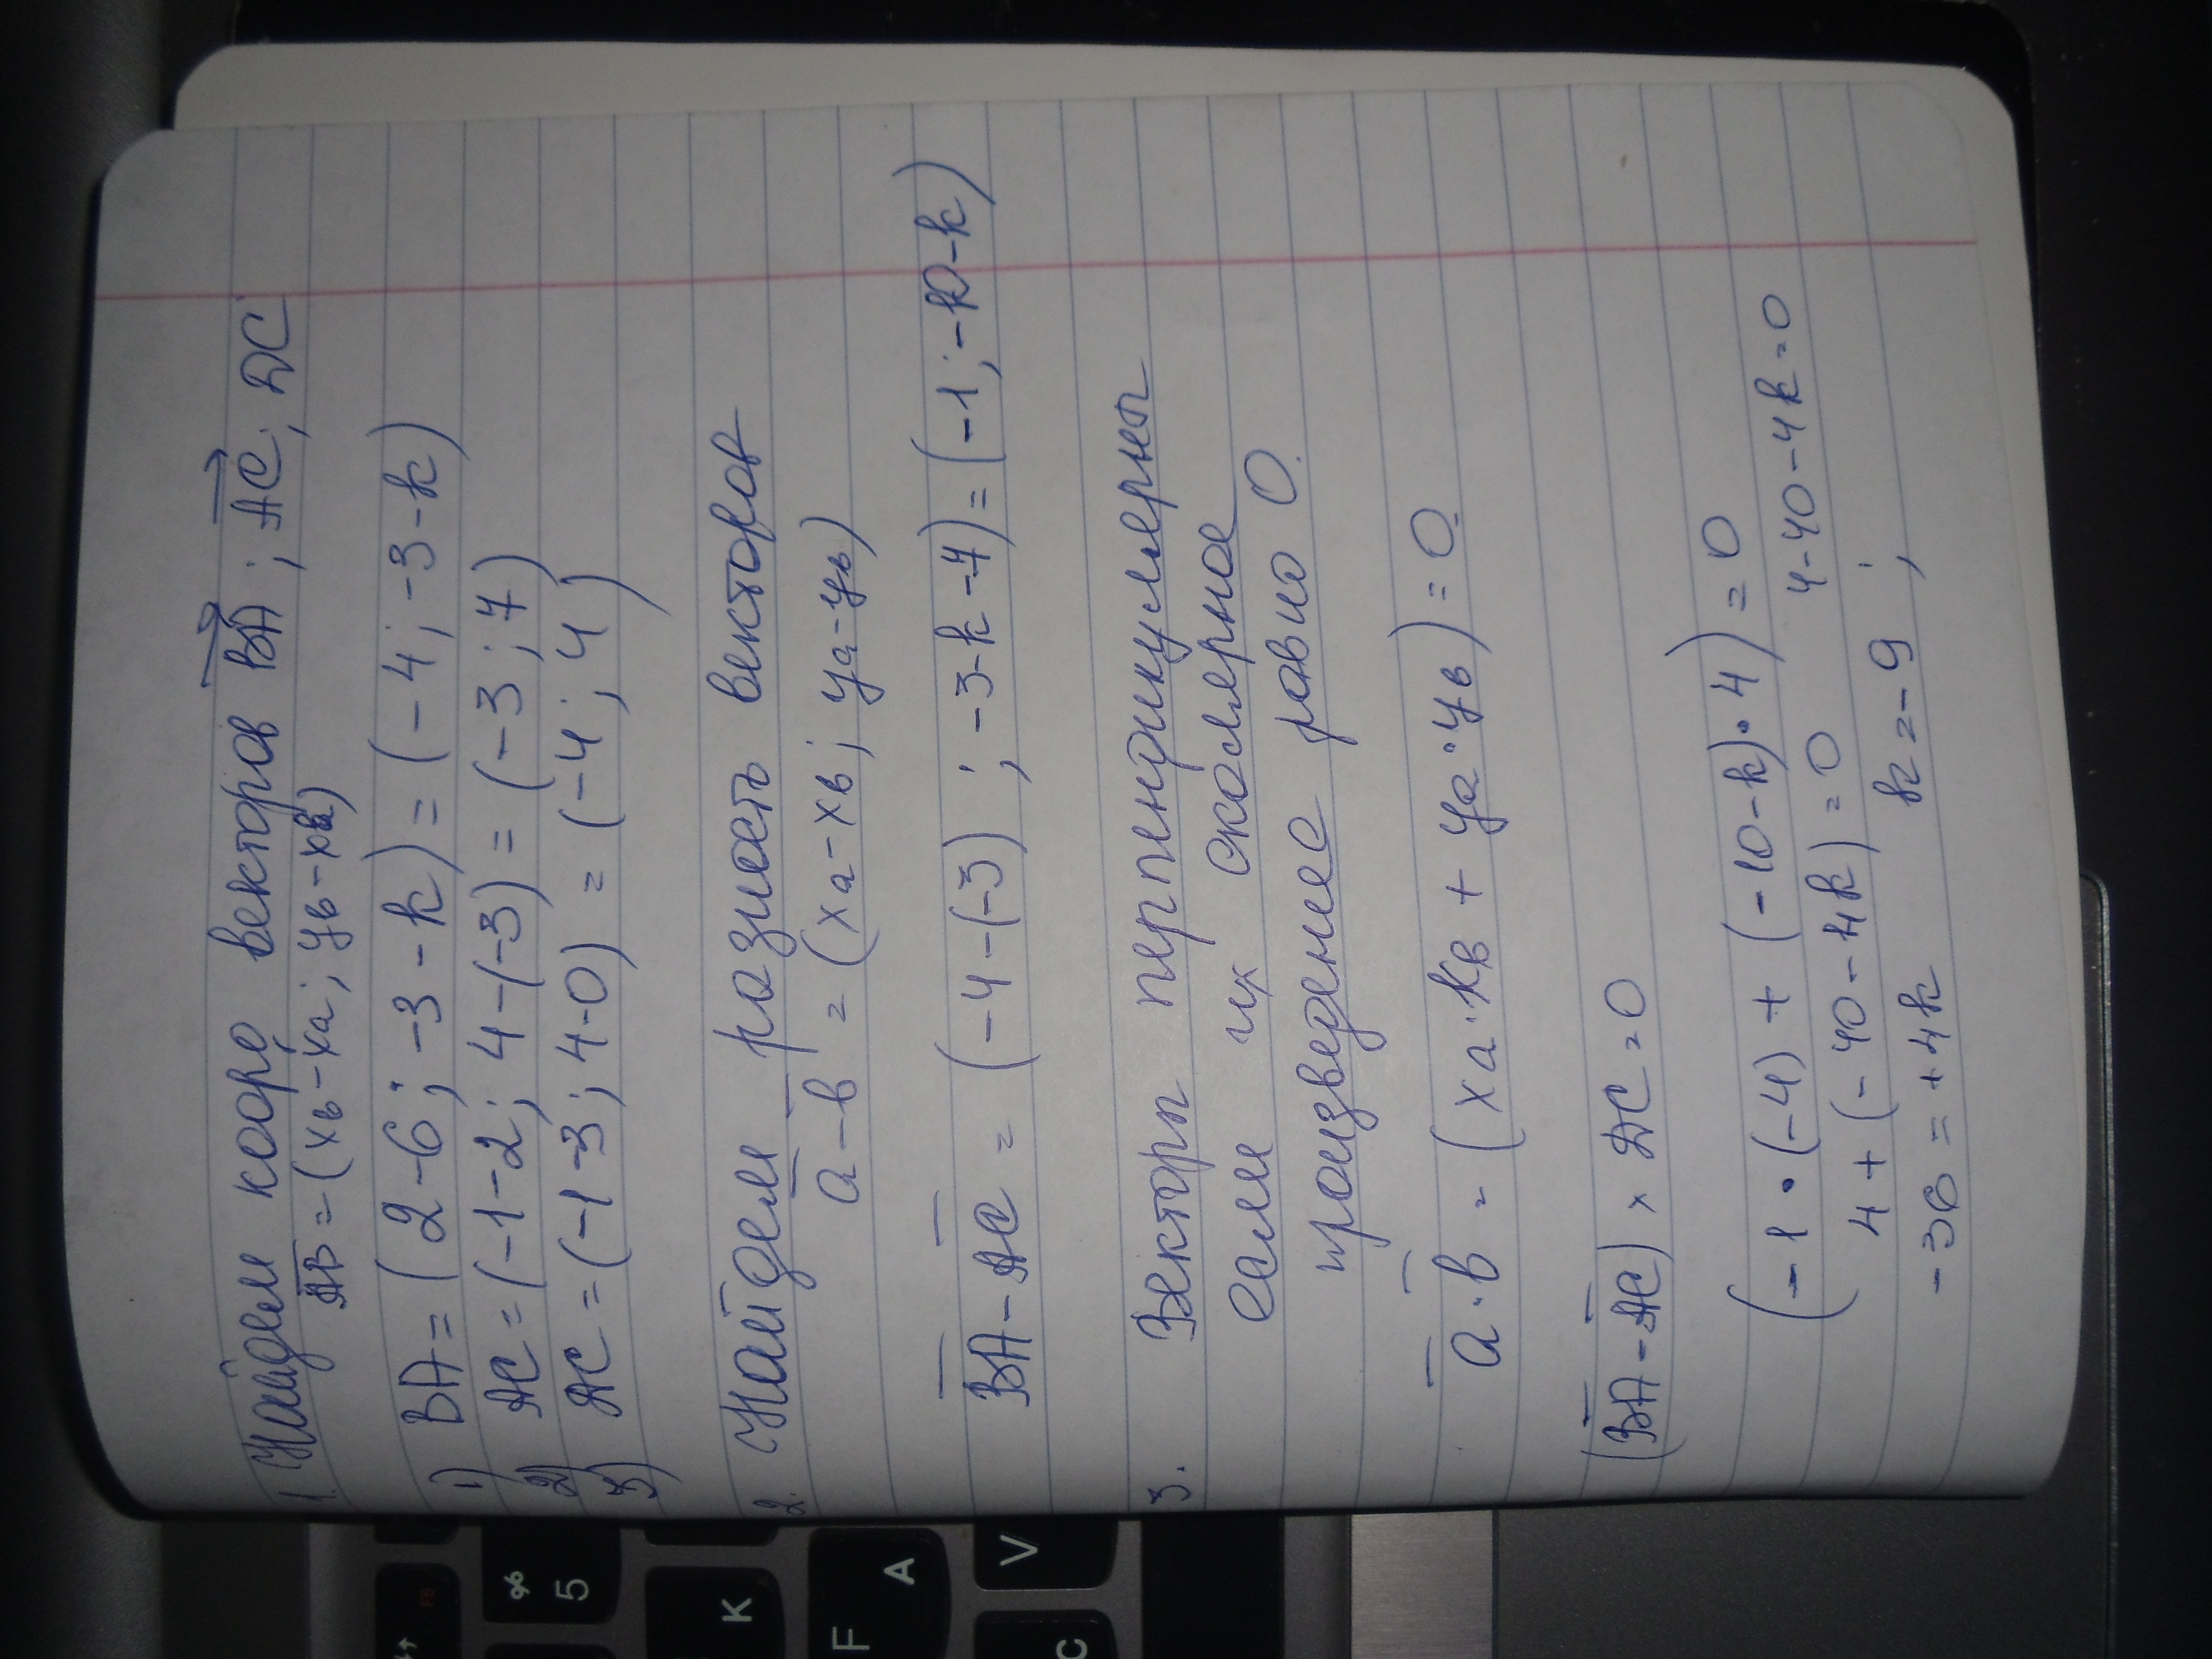 1. Найдем коорд векторов BA; AC, DC
AB = (xb - xa; yb - xa)
1) BA = (2-6; -3-k) = (-4; -3-k)
2) AC = (-1-2; 4-(-3) = (-3; 7)
3) DC = (-1-3; 4-0) = (-4; 4)
2. Найдем разность векторов
a - b = (xa - xb; ya - yb)
BA - AC = (-4-(-3); -3-k-7) = (-1; -10-k)
3. Векторы перпендикулярны
если их скалярное
произведение равно 0.
a · b = (xa · xb + ya · yb) = 0
(BA - AC) × DC = 0
(-1 · (-4) + (-10-k) · 4) = 0
4 + (-40 - 4k) = 0 4-40-4k=0
-36 = +4k k = -9;
% 5
K
F A
V
C